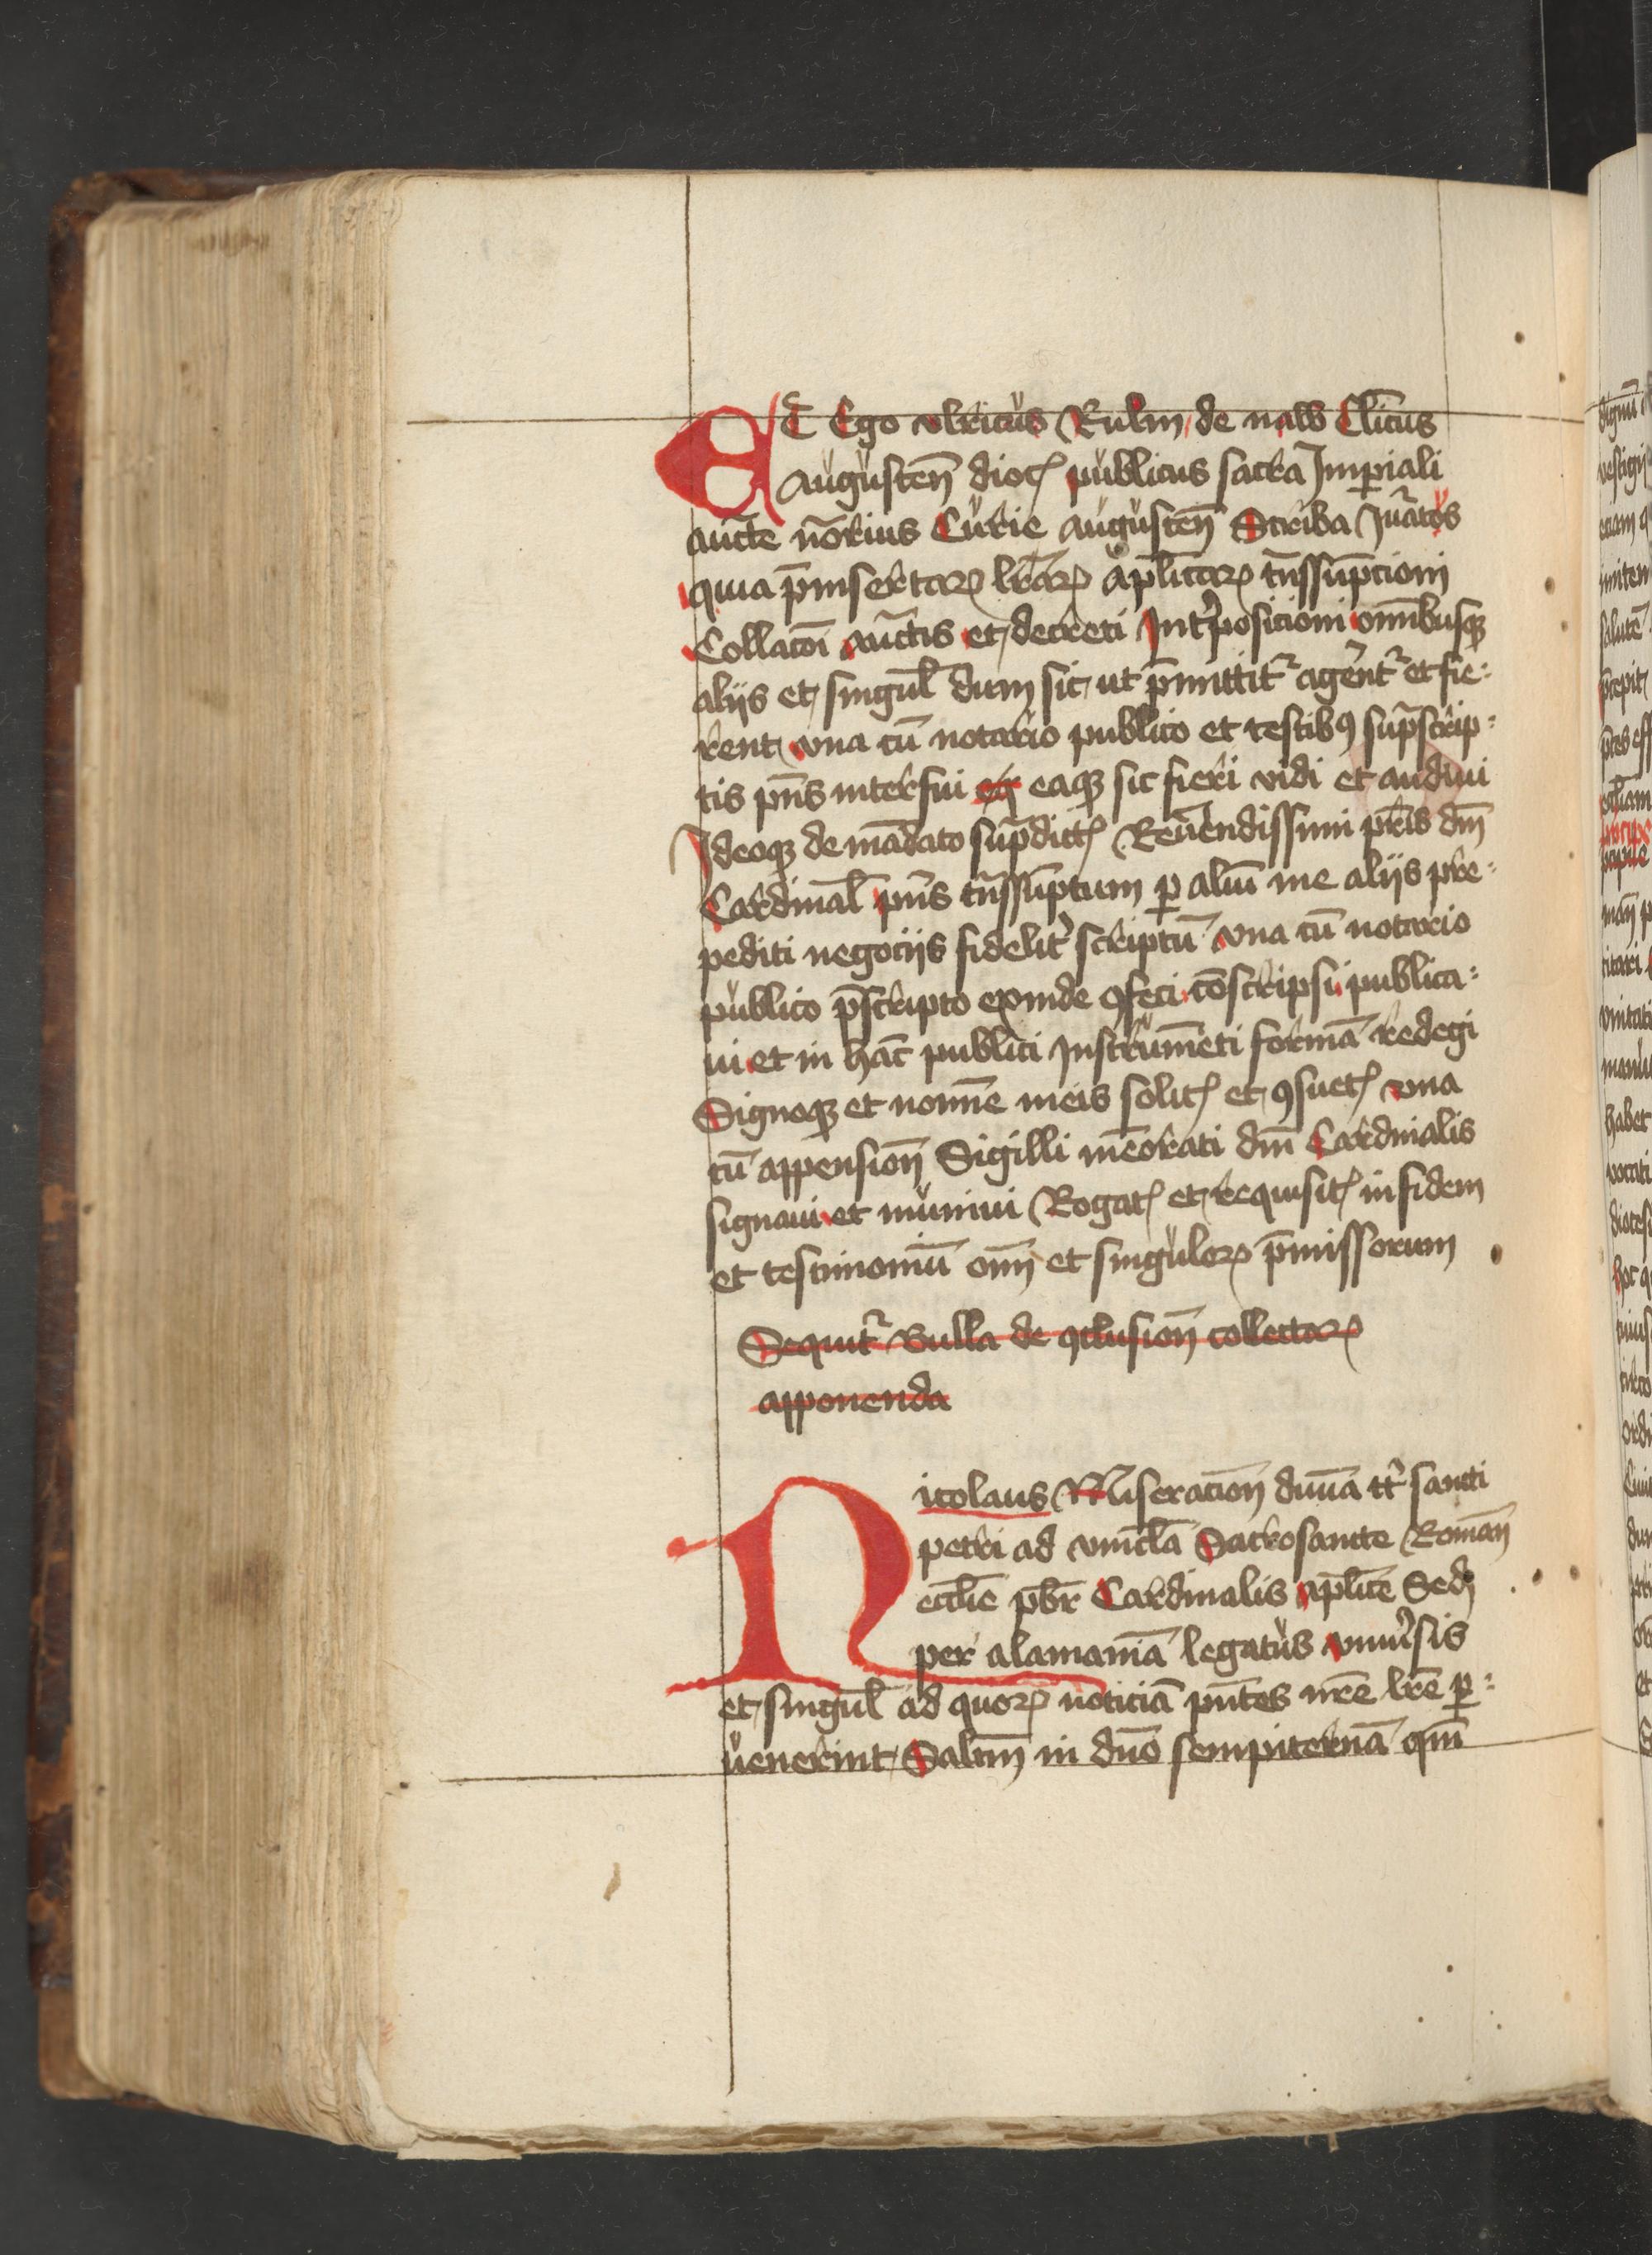 ET Ego vlricus Rulm de naw Cliĉus
Augusteñ dioĉ publicus sacra Imperiali
auĉte noĩrius Curie augusteñ Scriba Iuratus
quia p̄insertaꝝ lr̄aꝝ ap̄licaꝝ tn̄ssūpcioni
Collacōi Auĉtis et decreti Int̉posicioni om̄ibusqꝫ
alijs et singul̄ dum sic ut p̄mittit᷑ agerent᷑ et fie:
rent vna cū notario publico et testibꝰ sup̄scrip:
tis pn̄s interfui eaqꝫ sic fieri vidi et audiui
Ideoqꝫ de mādato sup̄dicti Reuēendissimi pr̄is dn̄i
Cardinal̄ pn̄s tn̄ssūptum ꝑ aliū me alijs pre:
pediti negocijs fidelit̉ scriptū vna cū notario
publico p̄scripto exinde ꝯfeci cōscripsi publica:
ui et in hāc publici Instrumēti formā redegi
Signoqꝫ et nomīe meis solit̄ et ꝯsuet̄ vna
cū appensioñ Sigilli mēorati dn̄i Cardinalis
signaui et muniui Rogat̄ et requisit̄ in fidem
et testimoniū om̄i et singuloꝝ p̄missorum
Sequit᷑ Bulla de ꝯclusioñ collectaꝝ
apponenda
Nicolaus Miseracioñ diuīa tt̉ sancti
petri ad vincl̄a Sacrosancte Romañ
ecclīe pbr̄ Cardinalis ap̄lice Sed̄
per alamaniā legatus vniủsis
et singul̄ ad quoꝝ noticiā pn̄tes nr̄e lr̄e ꝑ:
uenerint Salūm in dn̄o sempiternā qm̄